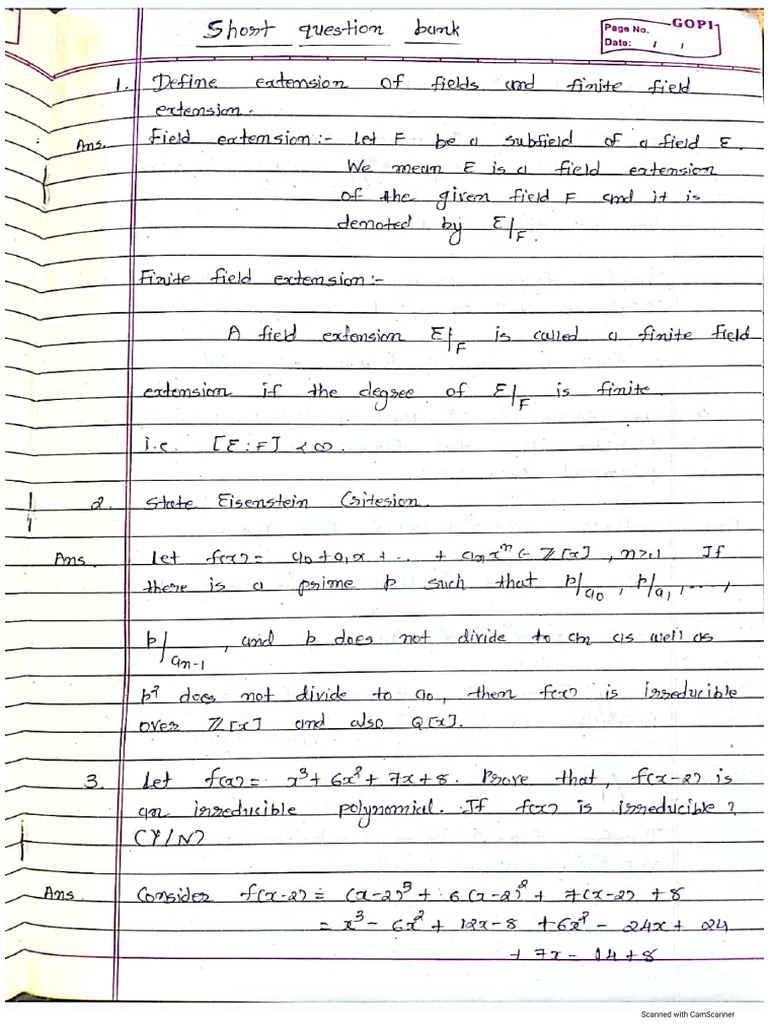 Short question bank
Page No. GOPI
Date: / /
1. Define extension of fields and finite field
extension.
Ans. Field extension:- Let F be a subfield of a field E.
We mean E is a field extension
of the given field F and it is
denoted by E/F.
Finite field extension:-
A field extension E/F is called a finite field
extension if the degree of E/F is finite.
i.e. [E:F] < ∞.
2. State Eisenstein Criterion.
Ans. Let f(x) = a0 + a1x + ... + anx^n ∈ Z[x], n≥1 If
there is a prime p such that p/a0, p/a1, ...,
p/an-1, and p does not divide to an as well as
p² does not divide to a0, then f(x) is irreducible
over Z[x] and also Q[x].
3. Let f(x) = x³ + 6x² + 7x + 8. Prove that, f(x-2) is
an irreducible polynomial. If f(x) is irreducible?
(Y/N)
Ans. Consider f(x-2) = (x-2)³ + 6(x-2)² + 7(x-2) + 8
= x³ - 6x² + 12x - 8 + 6x² - 24x + 24
+ 7x - 14 + 8
Scanned with CamScanner